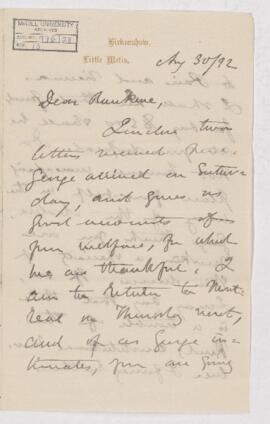 McGILL UNIVERSITY
ARCHIVES
ACC. NO.
REF.
Birkenshaw,
Little Metis,
Aug 30/92
Dear Rankine,
I inclose two
letters received here.
George arrived on Satur-
day, and gives us
good accounts of
your welfare, for which
we are thankful. I
am to return to Mont-
real on Thursday next,
and if as George in-
timates, you are going